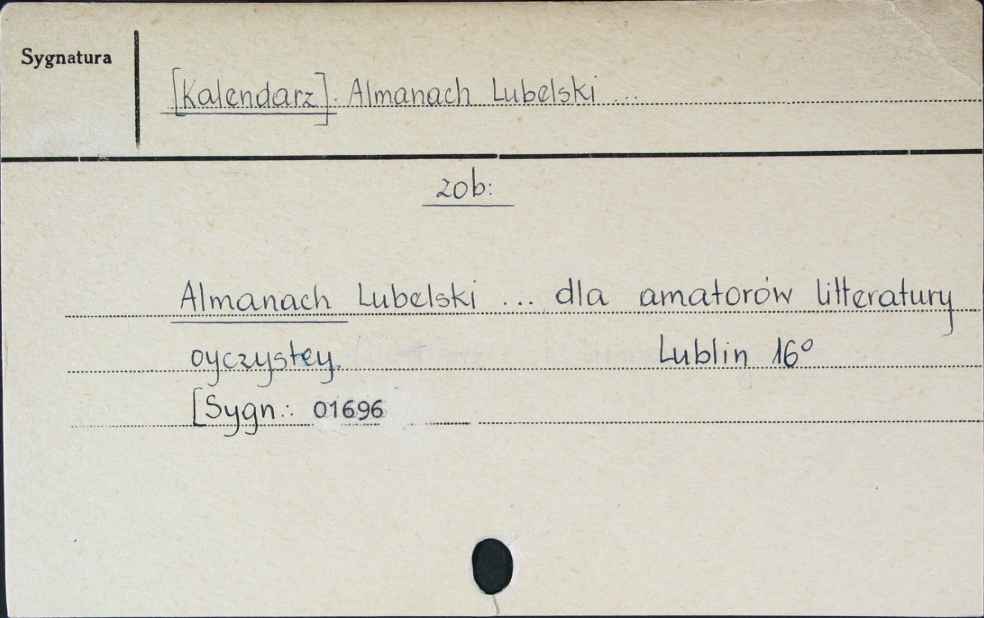 Sygnatura
[Kalendarz]. Almanach Lubelski ...
zob:
Almanach Lubelski ... dla amatorów litteratury
oyczystey. Lublin 16°
[Sygn.: 01696